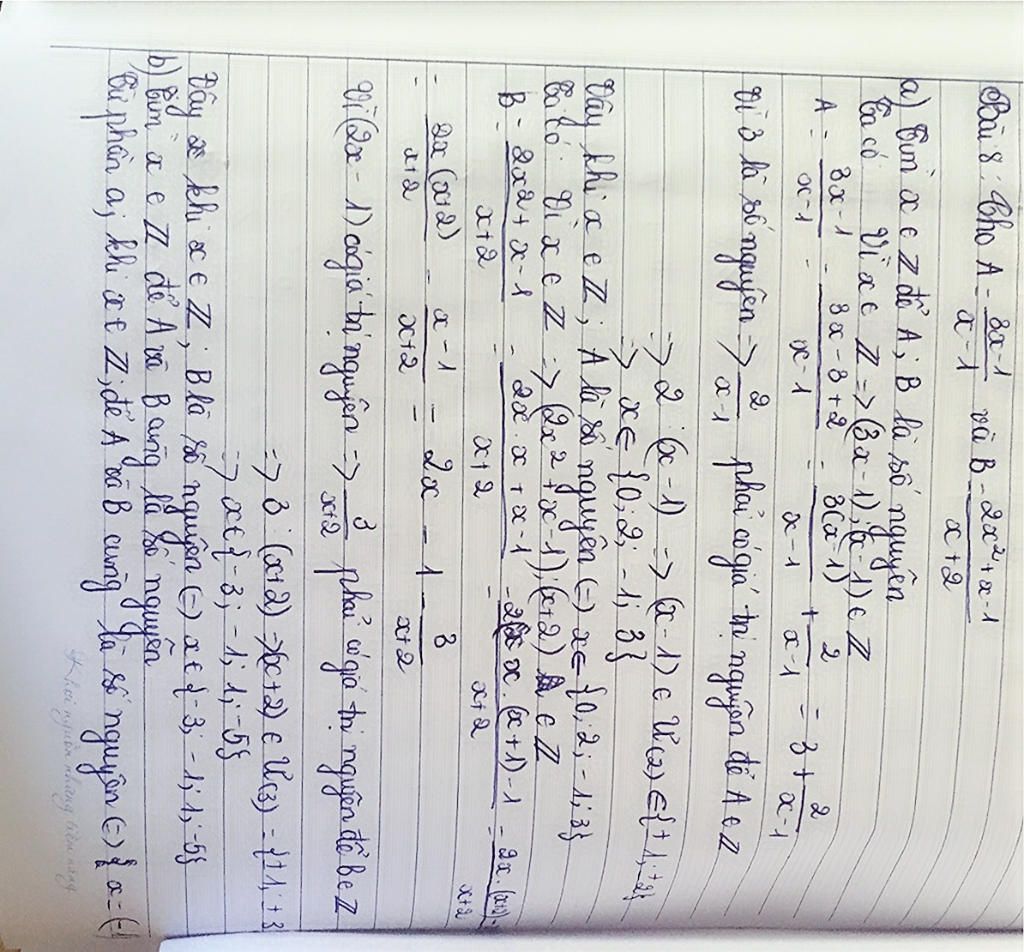 Bài 8: Cho A = 3x-1 / x-1 và B = 2x²+x-1 / x+2
a) Tìm x ∈ Z để A; B là số nguyên
Ta có Vì x ∈ Z => (3x-1); (x-1) ∈ Z
A = 3x-1 / x-1 = 3x-3+2 / x-1 = 3(x-1) / x-1 + 2 / x-1 = 3 + 2 / x-1
Vì 3 là số nguyên => 2 / x-1 phải có giá trị nguyên để A ∈ Z
=> 2 ⋮ (x-1) => (x-1) ∈ Ư(2) ∈ {±1; ±2}
=> x ∈ {0; 2; -1; 3}
Vậy khi x ∈ Z; A là số nguyên (=) x ∈ {0; 2; -1; 3}
Ta có: Vì x ∈ Z => (2x²+x-1); (x+2) ∈ Z
B = 2x²+x-1 / x+2 = 2x.x+x-1 / x+2 = x.(x+1)-1 / x+2 = 2x.(x+2)- / x+2
= 2x(x+2) / x+2 - x-1 / x+2 = 2x - 1 - 3 / x+2
Vì (2x-1) có giá trị nguyên => 3 / x+2 phải có giá trị nguyên để B ∈ Z
=> 3 ⋮ (x+2) => (x+2) ∈ Ư(3) = {±1; ±3
=> x ∈ {-3; -1; 1; -5}
Vậy khi x ∈ Z; B là số nguyên (=) x ∈ {-3; -1; 1; -5}
b) Tìm x ∈ Z để A và B cùng là số nguyên
Từ phần a; khi x ∈ Z; để A và B cùng là số nguyên (=) { x = (-1
Khơi nguồn những tiềm năng